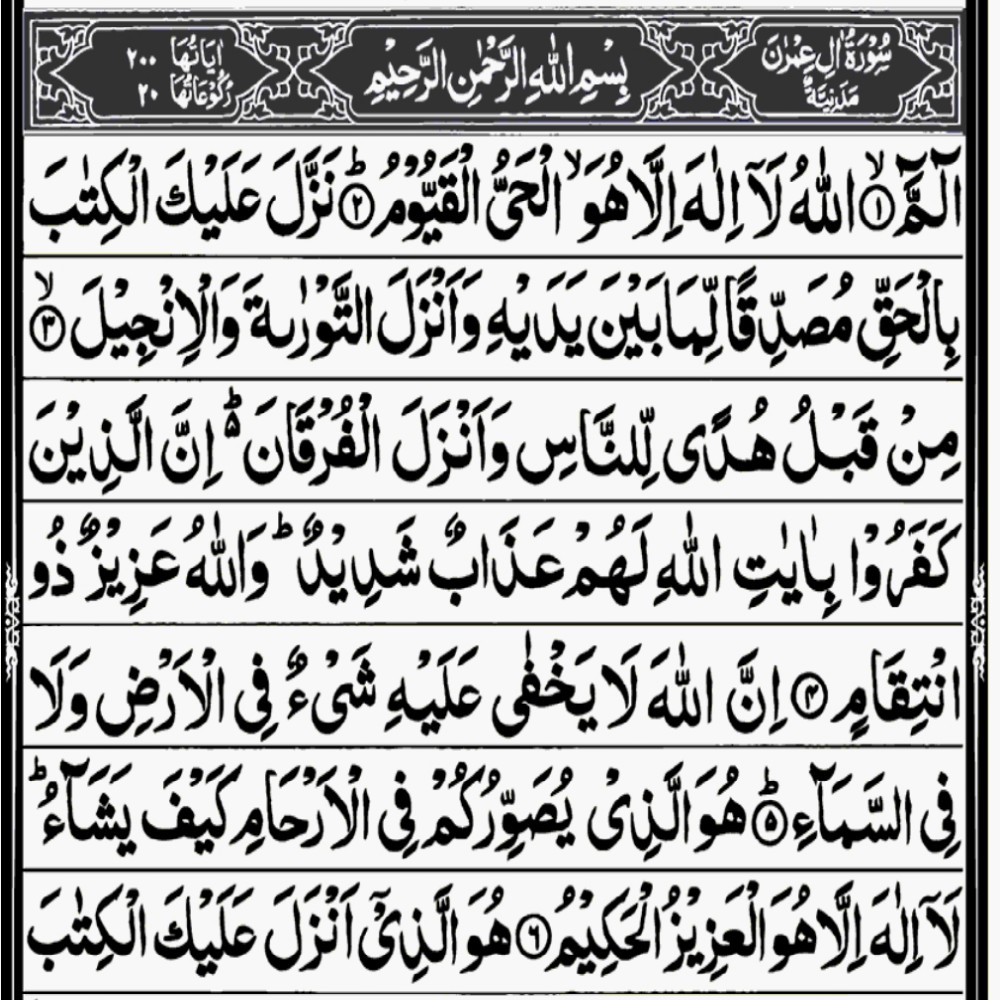 سُوْرَةُ اٰلِ عِمْرٰنَ مَدَنِيَّةٌ
بِسْمِ اللّٰهِ الرَّحْمٰنِ الرَّحِيْمِ
اٰيَاتُهَا ٢٠٠
رُكُوْعَاتُهَا ٢٠
الٓمّٓ ۙ‏﴿۱﴾ اللّٰهُ لَاۤ اِلٰهَ اِلَّا هُوَ ۙ الْحَىُّ الْقَيُّوْمُ ؕ‏﴿۲﴾ نَزَّلَ عَلَيْكَ الْكِتٰبَ
بِالْحَقِّ مُصَدِّقًا لِّمَا بَيْنَ يَدَيْهِ وَاَنْزَلَ التَّوْرٰىةَ وَالْاِنْجِيْلَ ۙ‏﴿۳﴾
مِنْ قَبْلُ هُدًى لِّلنَّاسِ وَاَنْزَلَ الْفُرْقَانَ ۬ؕ اِنَّ الَّذِيْنَ
كَفَرُوْا بِاٰيٰتِ اللّٰهِ لَهُمْ عَذَابٌ شَدِيْدٌ ؕ وَاللّٰهُ عَزِيْزٌ ذُو
انْتِقَامٍ ﴿۴﴾ اِنَّ اللّٰهَ لَا يَخْفٰى عَلَيْهِ شَىْءٌ فِى الْاَرْضِ وَلَا
فِى السَّمَآءِ ؕ‏﴿۵﴾ هُوَ الَّذِىْ يُصَوِّرُكُمْ فِى الْاَرْحَامِ كَيْفَ يَشَآءُ ؕ
لَاۤ اِلٰهَ اِلَّا هُوَ الْعَزِيْزُ الْحَكِيْمُ ﴿۶﴾ هُوَ الَّذِىْۤ اَنْزَلَ عَلَيْكَ الْكِتٰبَ